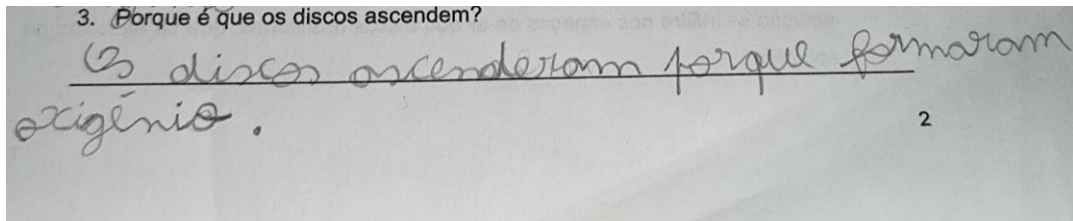 3. Porque é que os discos ascendem?
Os discos ascenderam porque formaram
oxigénio.
2